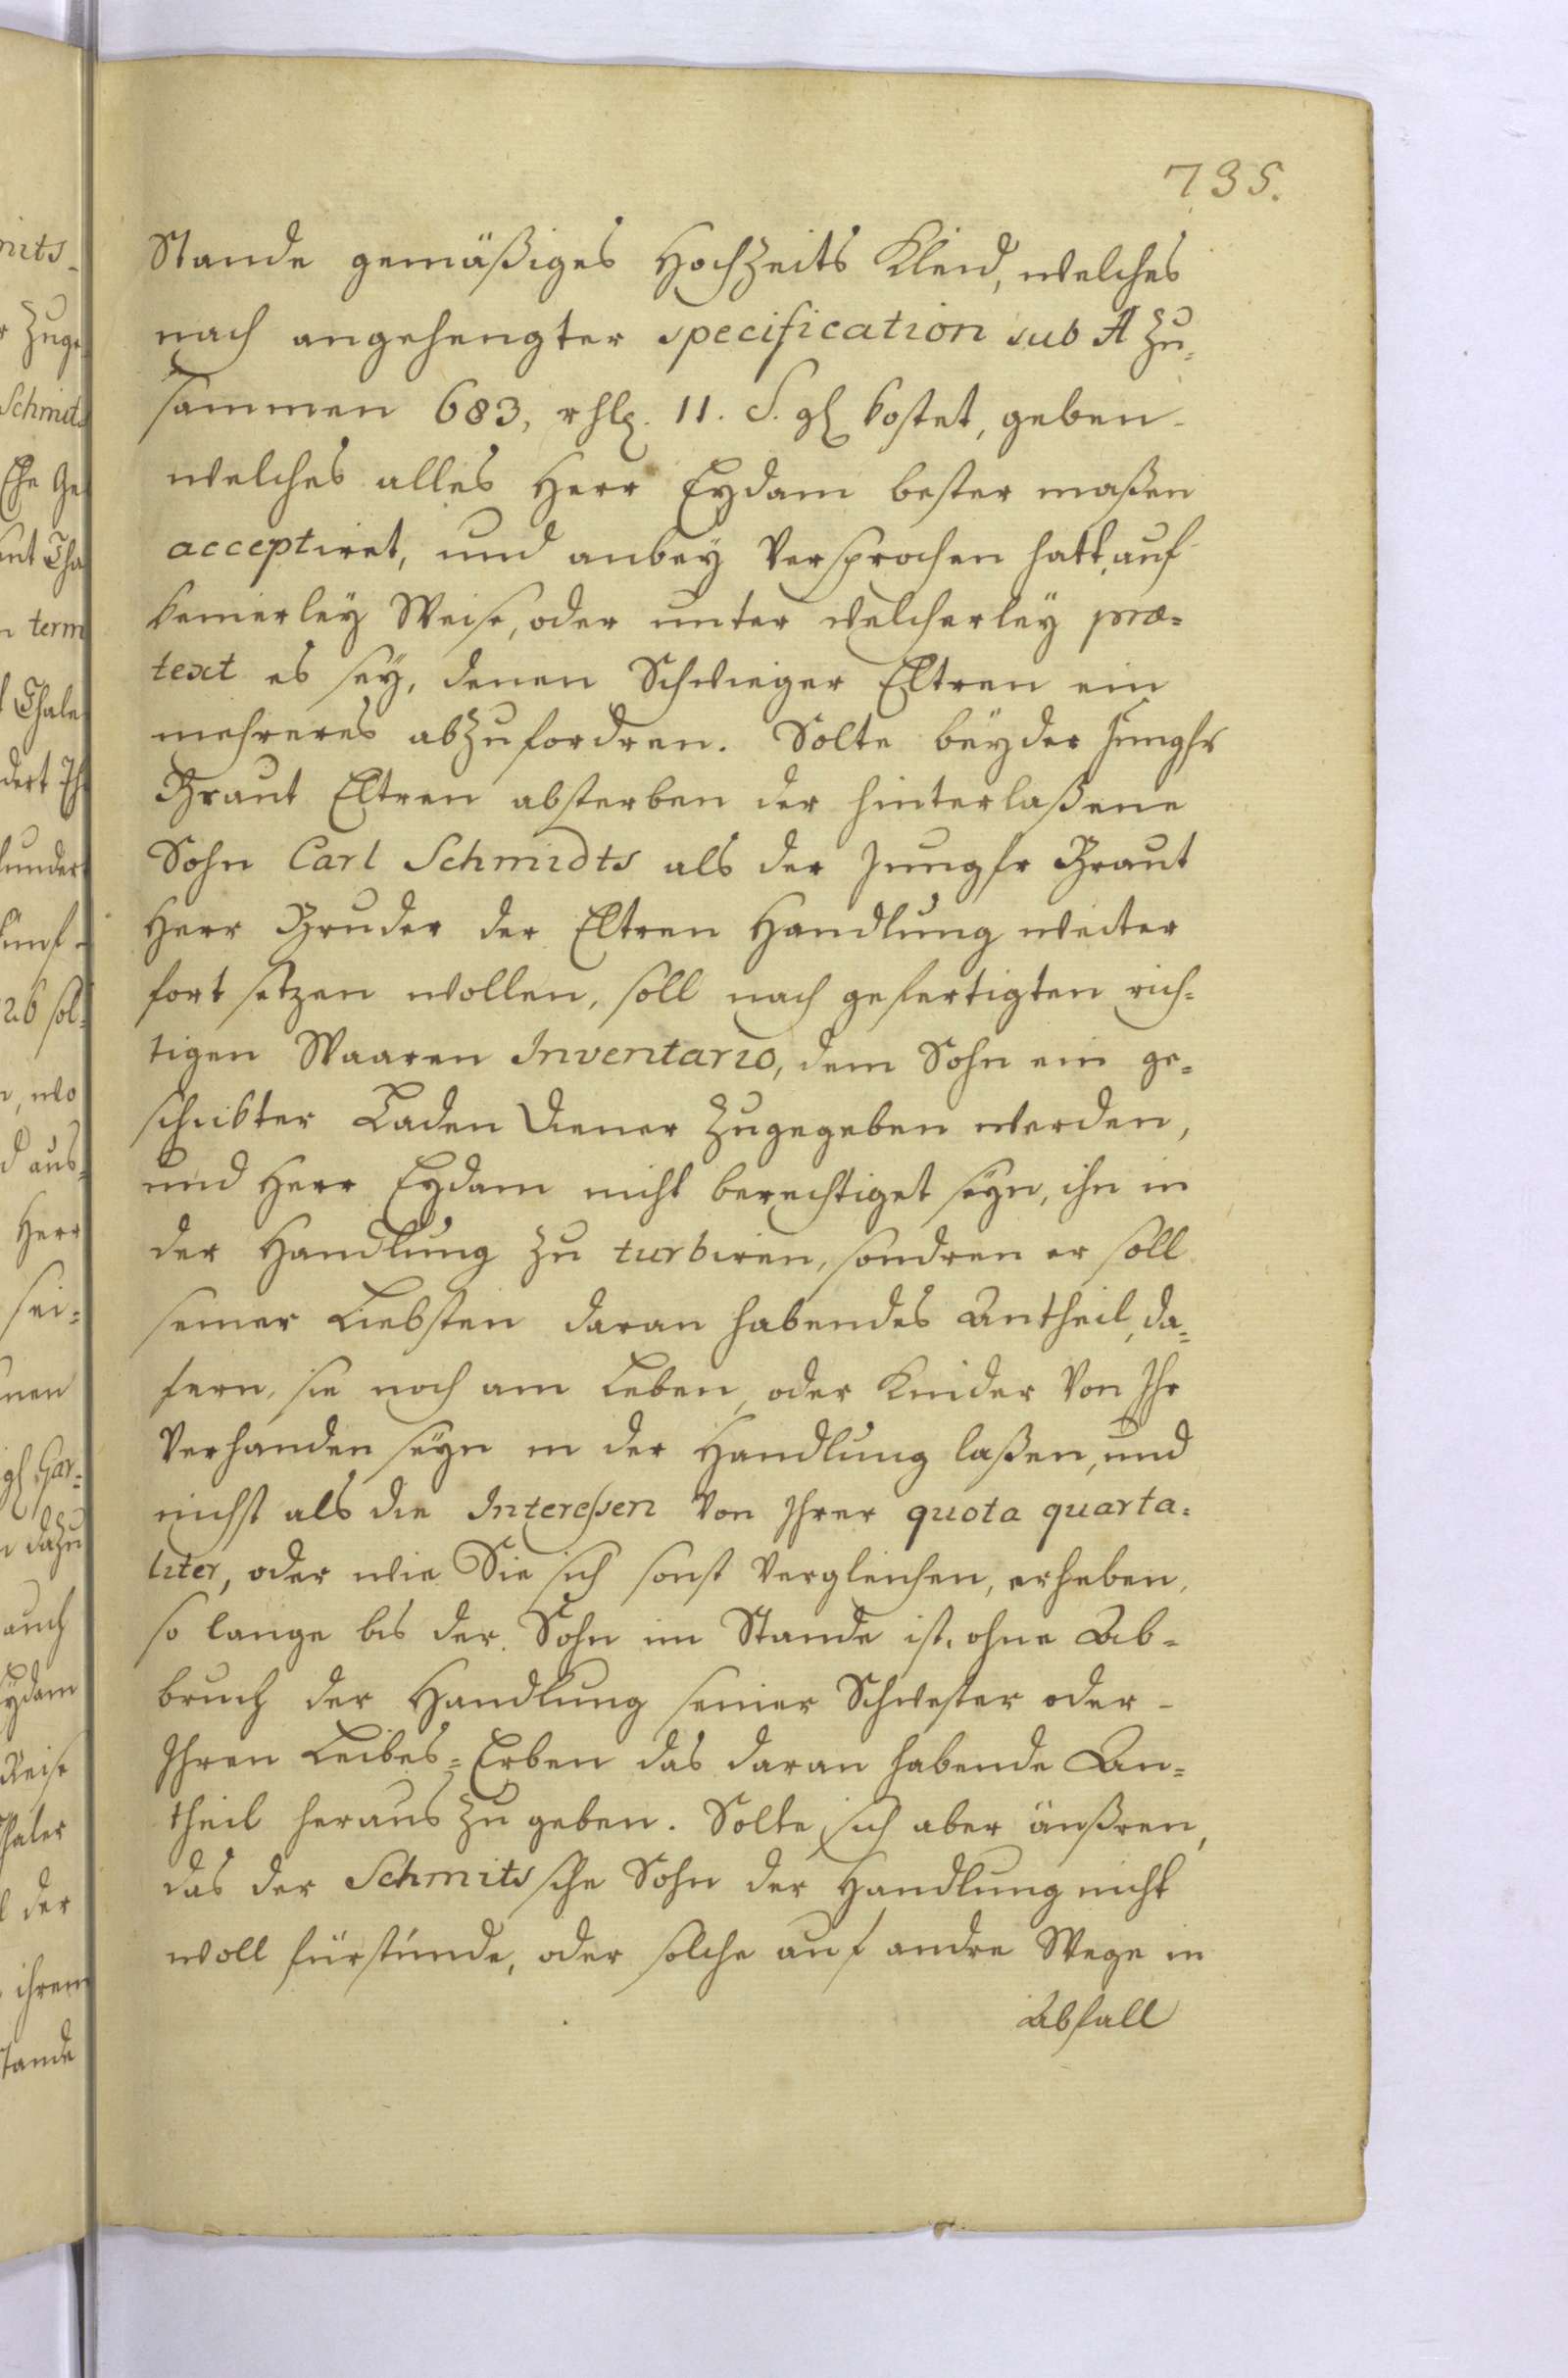 735.
Stande gemäßiges Hochzeits Kleid, welches
nach angehengter specification sub A zu-
sammen 683, rhlr. 11. S. gl kostet, geben -
welches alles Herr Eydam bester maßen
acceptiret, und anbey versprochen hatt, auf
keinerley Weise, oder unter welcherley præ-
text es sey, denen Schwieger Eltren ein
mehreres abzufordren. Solte beyder Jungfr
Braut Eltren absterben der hinterlaßene
Sohn Carl Schmidts als der Jungfr Braut
Herr Bruder der Eltren Handlung weiter
fort setzen wollen, soll nach gefertigten rich-
tigen Waaren Inventario, dem Sohn ein ge-
schickter Laden Diener zugegeben werden,
und Herr Eydam nicht berechtiget seyn, ihn in
der Handlung zu turbiren, sondren er soll
seiner Liebsten daran habendes Antheil, da-
fern, sie noch am Leben, oder Kinder von Ihr
verhanden seyn in der Handlung laßen, und
nichst als die Interessen von Ihrer quota quarta-
liter, oder wie Sie sich sonst vergleichen, erheben,
so lange bis der Sohn im Stande ist, ohne Ab-
bruch der Handlung seiner Schwester oder -
Ihren Leibes-Erben das daran habende An-
theil heraus zu geben. Solte sich aber äußren,
das der Schmitssche Sohn der Handlung nicht
woll fürstünde, oder solche auf andre Wege in
Abfall